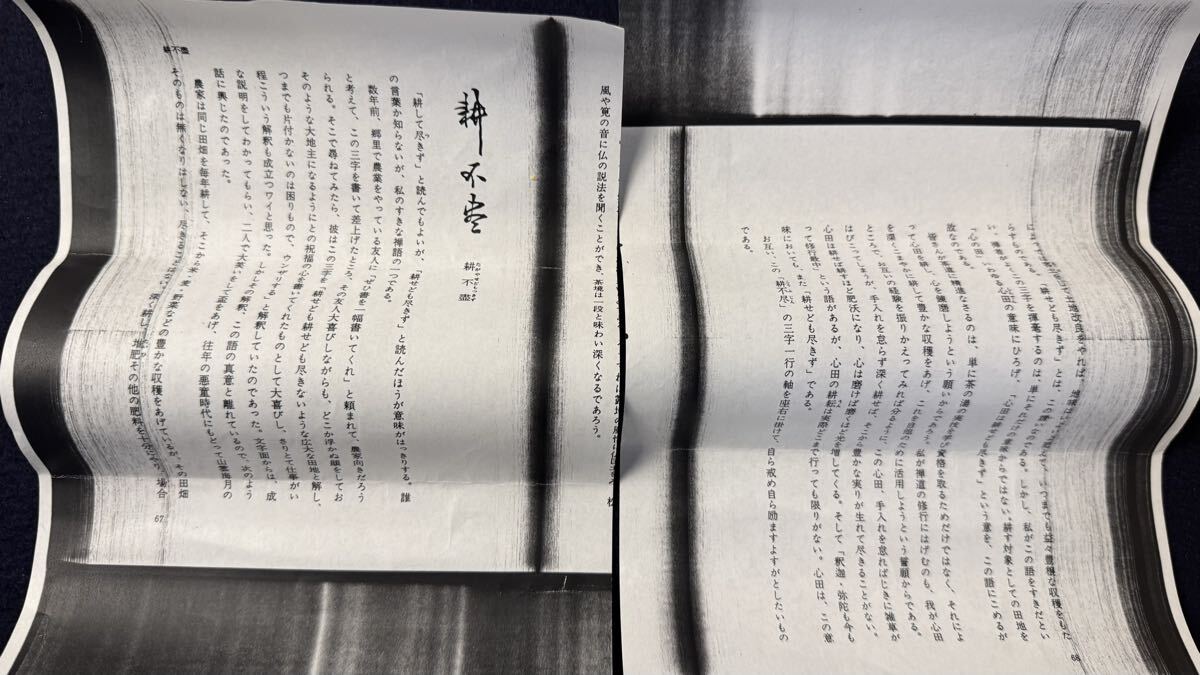 風や筧の音に仏の説法を聞くことができ、茶境は一段と味わい深くなるであろう。
耕不盡
耕不盡
たがやせどもつきず
「耕して尽きず」と読んでもよいが、「耕せども尽きず」と読んだほうが意味がはっきりする。誰
の言葉か知らないが、私のすきな禅語の一つである。
数年前、郷里で農業をやっている友人に「ぜひ書を一幅書いてくれ」と頼まれて、農家向きだろう
と考えて、この三字を書いて差上げたところ、その友人大喜びしながらも、どこか浮かぬ顔をしてお
られる。そこで尋ねてみたら、彼はこの三字を「耕せども耕せども尽きないような広大な田地と解し、
そのような大地主になるようにとの祝福の心を書いてくれたものとして大喜びし、さりとて仕事がい
つまでも片付かないのは困りもので、ウンザリする」と解釈していたのであった。文字面からは、成
程こういう解釈も成立つワイと思った。しかしその解釈、この語の真意と離れているので、次のよう
な説明をしてわかってもらい、二人で大笑いをして盃をあげ、往年の悪童時代にもどって山雲海月の
話に興じたのであった。
農家は同じ田畑を毎年耕して、そこから米・麦・野菜などの豊かな収穫をあげているが、その田畑
そのものは無くなりはしない、尽きることはない。深く耕し、堆肥その他の肥料を十分にやり、場合
耕不盡
67
によっては土地改良をやれば、地味はいよいよ肥えて、いつまでも益々豊穣な収穫をもた
らすものである。「耕せども尽きず」とは、この
い。禅者がよくこの三字を揮毫するのは、単にそれだけの意味からではない。耕す対象としての田地を
「心の田」、いわゆる心田の意味にひろげ、「心田は耕せども尽きず」という意を、この語にこめるが
故なのである。
皆さんが茶道に精進なさるのは、単に茶の湯の実技を学び資格を取るためだけではなく、それによ
って心田を耕し、心を錬磨しようという願いからであろう。私が禅道の修行にはげむのも、我が心田
を深くこまやかに耕して豊かな収穫をあげ、これを自他のために活用しようという誓願からである。
ところで、お互いの経験を振りかえってみれば分るように、この心田、手入れを怠ればじきに雑草が
はびこってしまうが、手入れを怠らず深く耕せば、そこから豊かな実りが生れて尽きることがない。
心田は耕せば耕すほど肥沃になり、心は磨けば磨くほど光を増してくる。そして「釈迦・弥陀も今も
って修行最中」という語があるが、心田の耕耘は実際どこまで行っても限りがない。心田は、この意
味においても、また「耕せども尽きず」である。
お互い、この「耕不尽」の三字一行の軸を座右に掛けて、自ら戒め自ら励ますよすがとしたいもの
である。
68